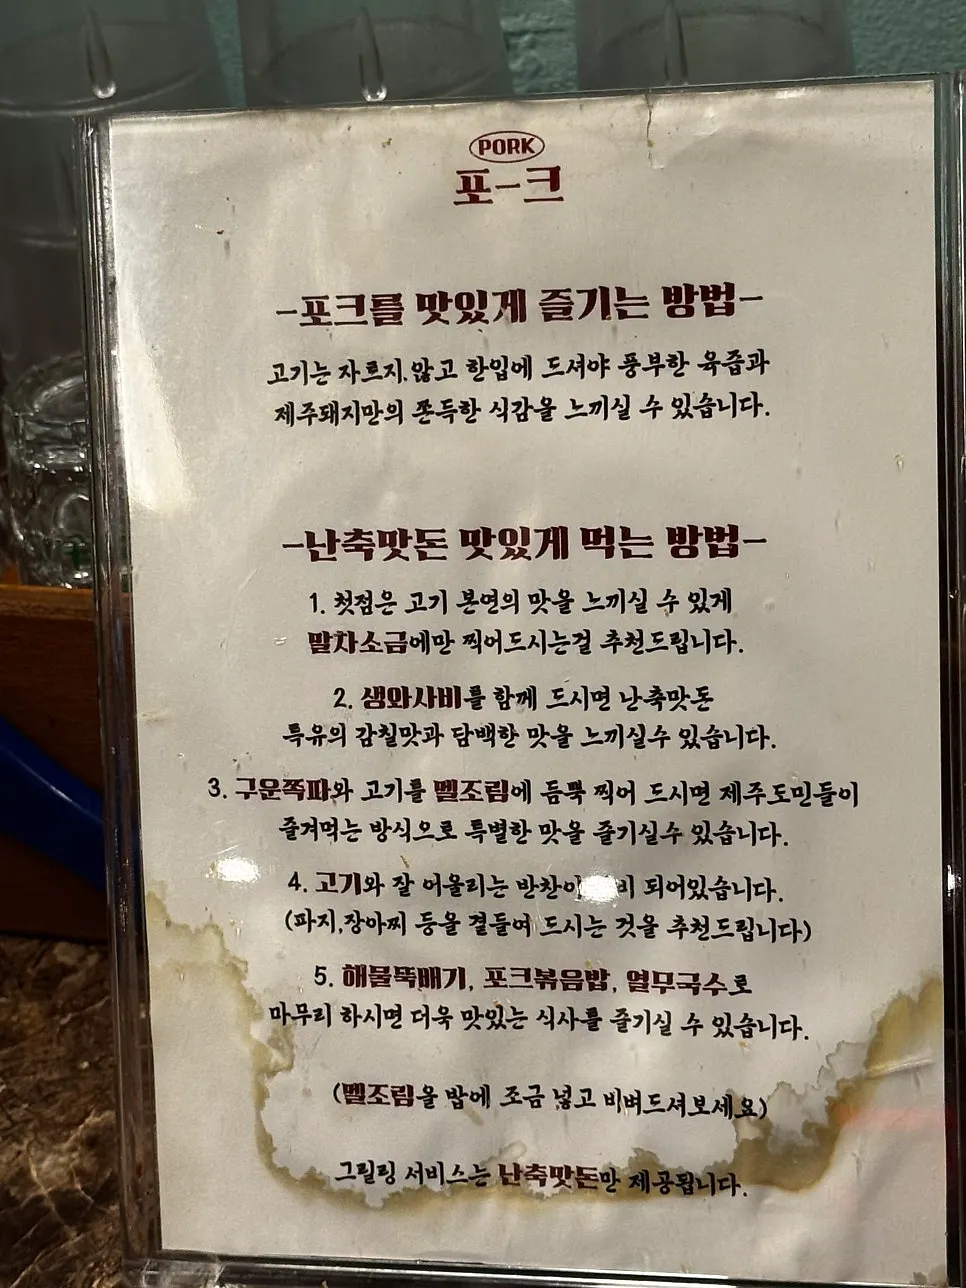 PORK
포-크
-포크를 맛있게 즐기는 방법-
고기는 자르지.않고 한입에 드셔야 풍부한 육즙과
제주돼지만의 쫀득한 식감을 느끼실 수 있습니다.
-난축맛돈 맛있게 먹는 방법-
1. 첫점은 고기 본연의 맛을 느끼실 수 있게
말차소금에만 찍어드시는걸 추천드립니다.
2. 생와사비를 함께 드시면 난축맛돈
특유의 감칠맛과 담백한 맛을 느끼실수 있습니다.
3. 구운쪽파와 고기를 멜조림에 듬뿍 찍어 드시면 제주도민들이
즐겨먹는 방식으로 특별한 맛을 즐기실수 있습니다.
4. 고기와 잘 어울리는 반찬이 되어있습니다.
(파지,장아찌 등을 곁들여 드시는 것을 추천드립니다)
5. 해물뚝배기, 포크볶음밥, 열무국수로
마무리 하시면 더욱 맛있는 식사를 즐기실 수 있습니다.
(멜조림을 밥에 조금 넣고 비벼드셔보세요)
그릴링 서비스는 난축맛돈만 제공됩니다.